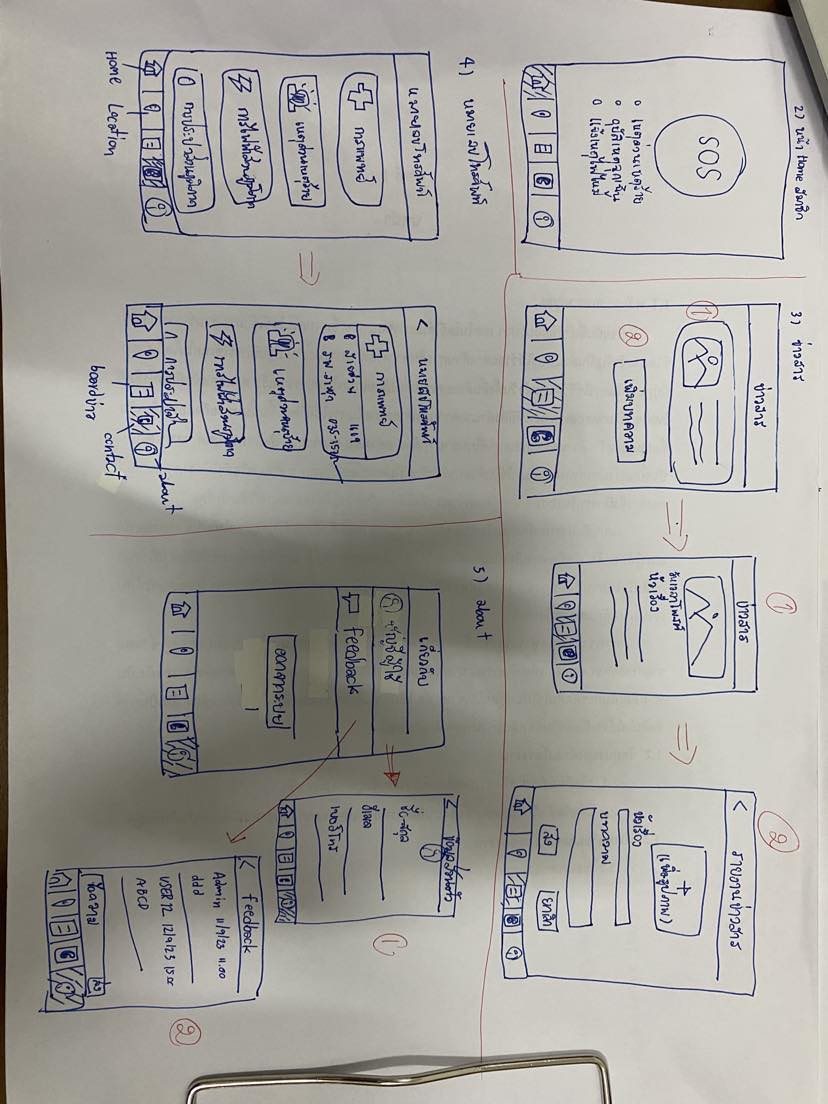 2) หน้า Home สมาชิก
SOS
เหตุด่วนเหตุร้าย
อุบัติเหตุฉุกเฉิน
แจ้งเหตุไฟไหม้
3) ข่าวสาร
ข่าวสาร
1
2
เพิ่มบทความ
1
ข่าวสาร
วันเวลาโพสต์
หัวเรื่อง
2
< รายงานข่าวสาร
+
(เพิ่มรูปภาพ)
หัวเรื่อง
บทความ
ส่ง
ยกเลิก
4) หมายเลขโทรศัพท์
หมายเลขโทรศัพท์
การแพทย์
เหตุด่วนเหตุร้าย
การไฟฟ้าส่วนภูมิภาค
การประปาส่วนภูมิภาค
Home
Location
< หมายเลขโทรศัพท์
การแพทย์
สายด่วน
เหตุด่วนเหตุร้าย
การไฟฟ้าส่วนภูมิภาค
about
contact
boardข่าว
5) about
เกี่ยวกับ
บัญชีผู้ใช้
feedback
ออกจากระบบ
< ข้อมูลส่วนตัว
ชื่อ-สกุล
อีเมล
เบอร์โทร
1
< feedback
Admin 11/9/23 11.00
ddd
USER 12 12/9/23
ABCD
ข้อความ
ส่ง
2